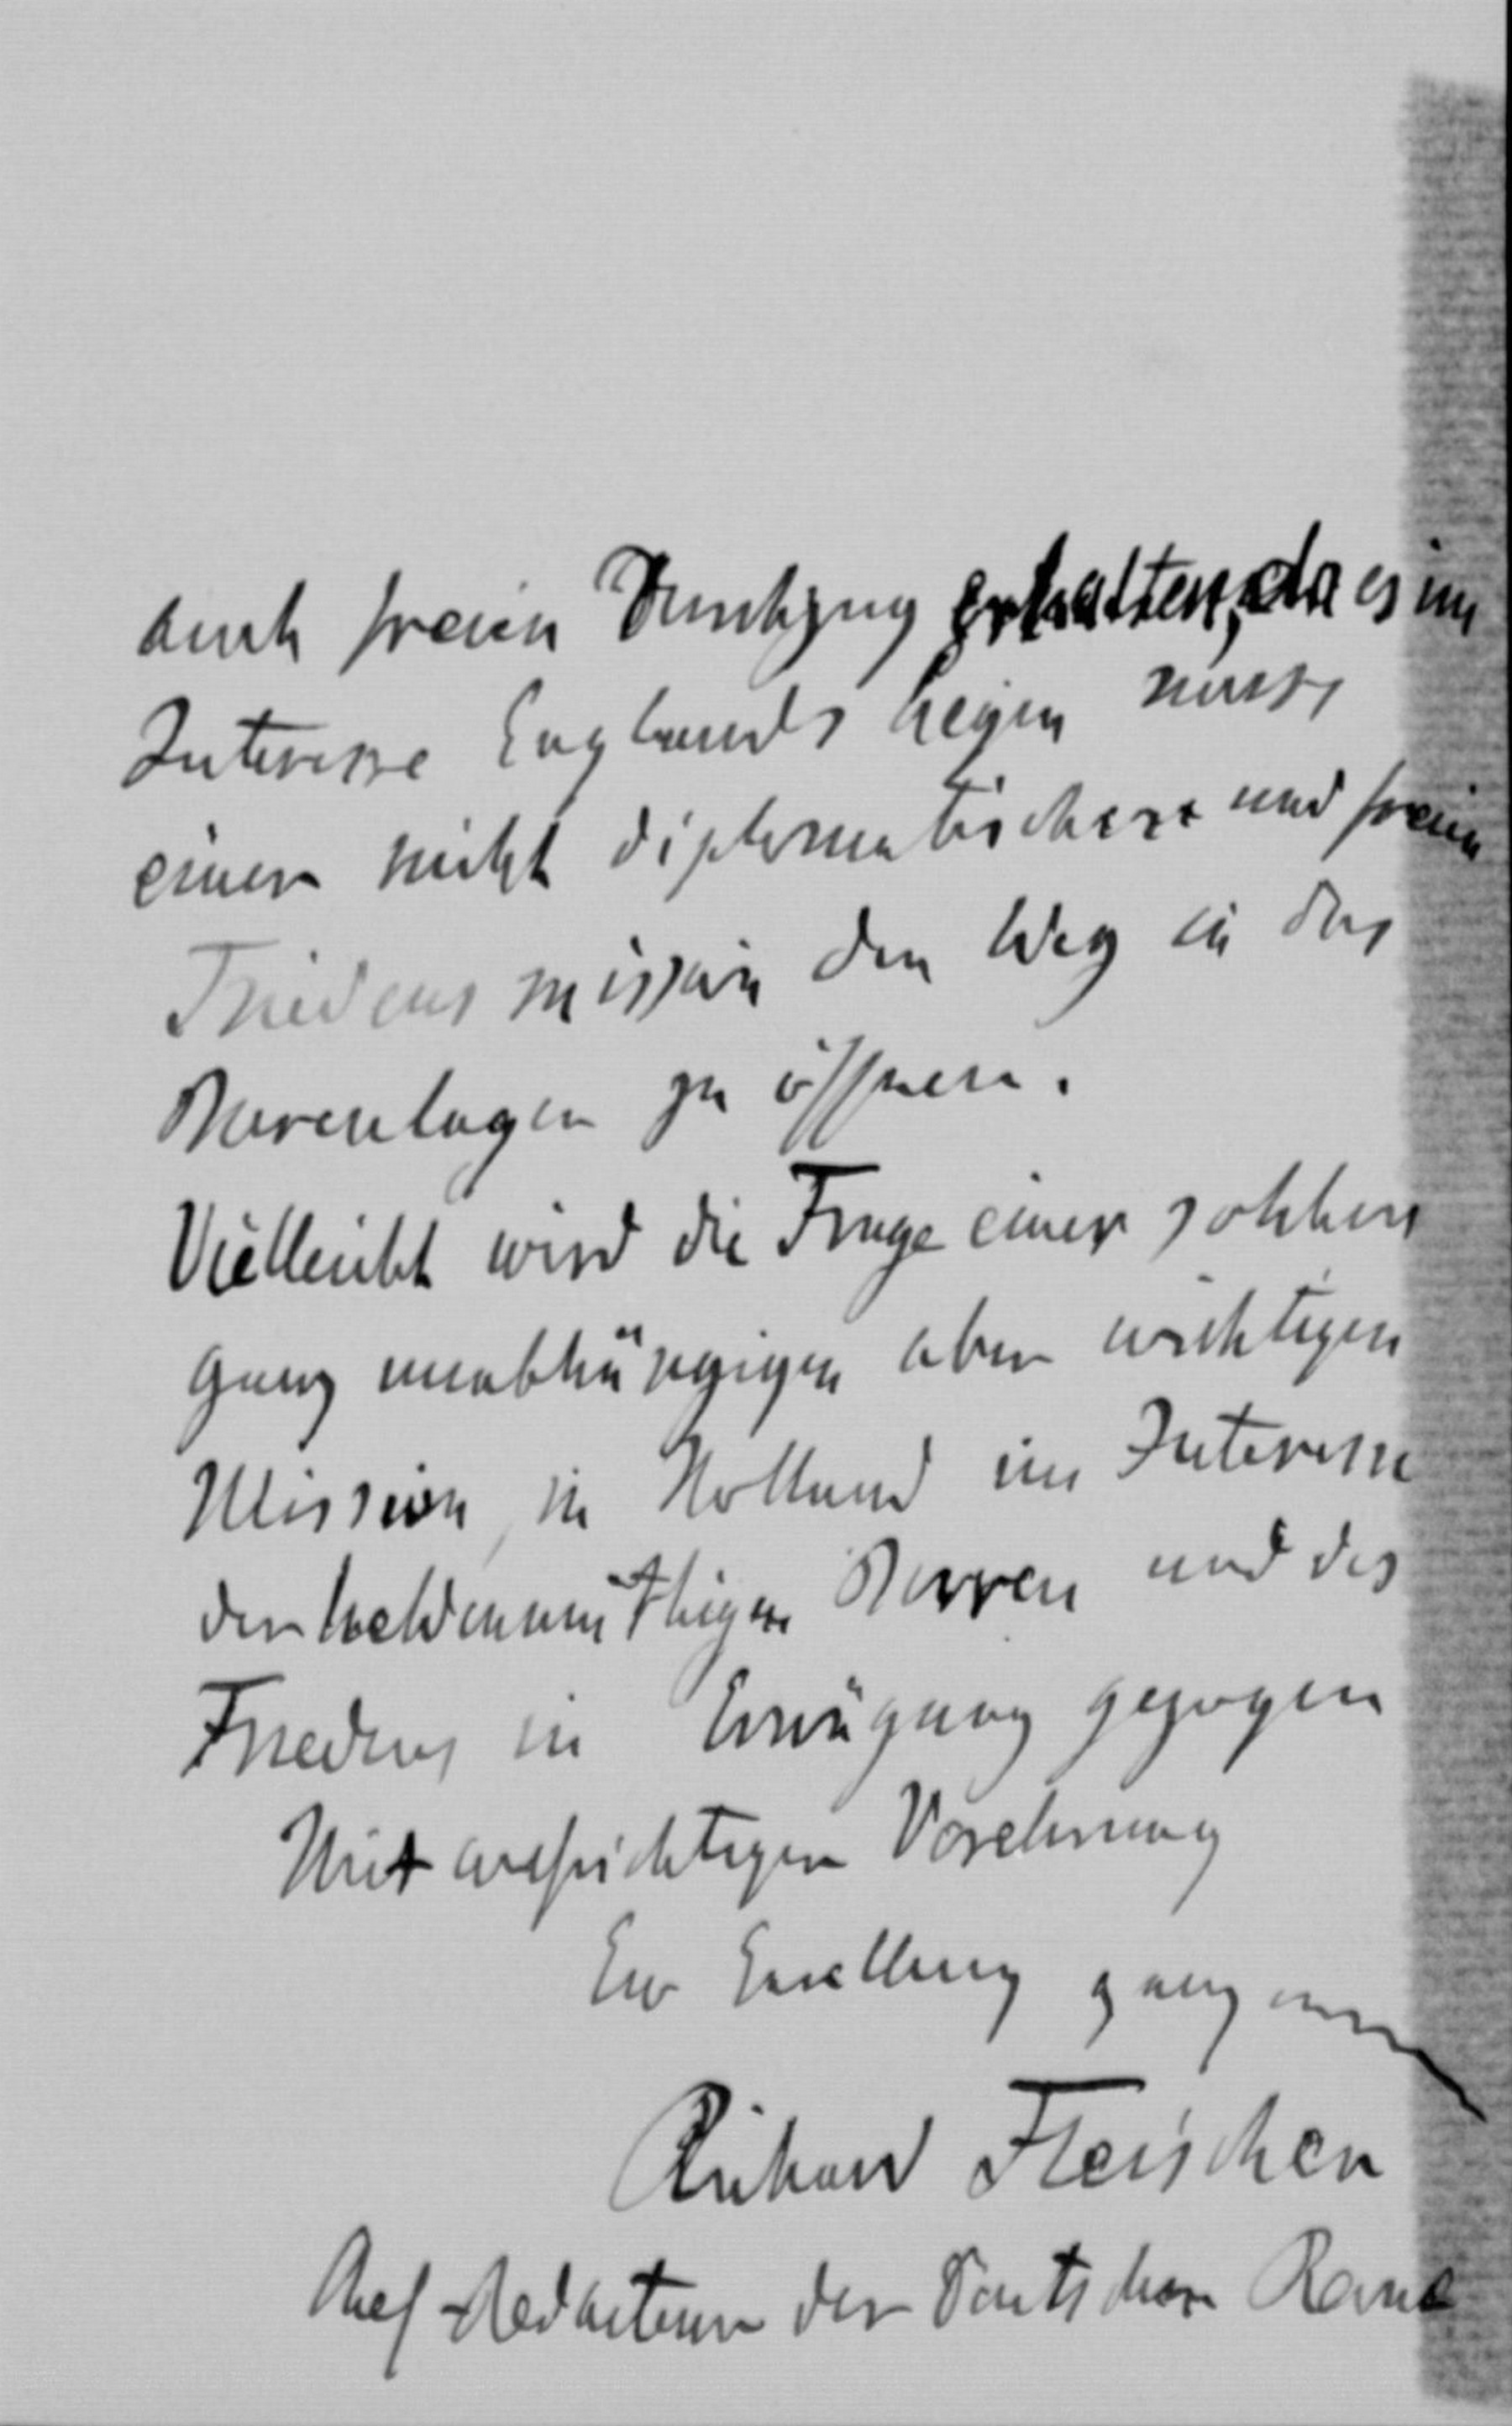 auch freien Durchzug erhalten, da es im
Interesse Englands liegen muss,
einer nicht diplomatischen und freien
Friedensmission den Weg in das
Burenlager zu öffnen.
Vielleicht wird die Frage einer solchen
ganz unabhängigen aber wichtigen
Mission, in Holland im Interesse
der heldenmüthigen Buren und des
Friedens in Erwägung gezogen
Mit aufrichtiger Verehrung
Ew Excellenz ganz
Richard Fleischer
Chef-Redacteur der Deutschen Revue